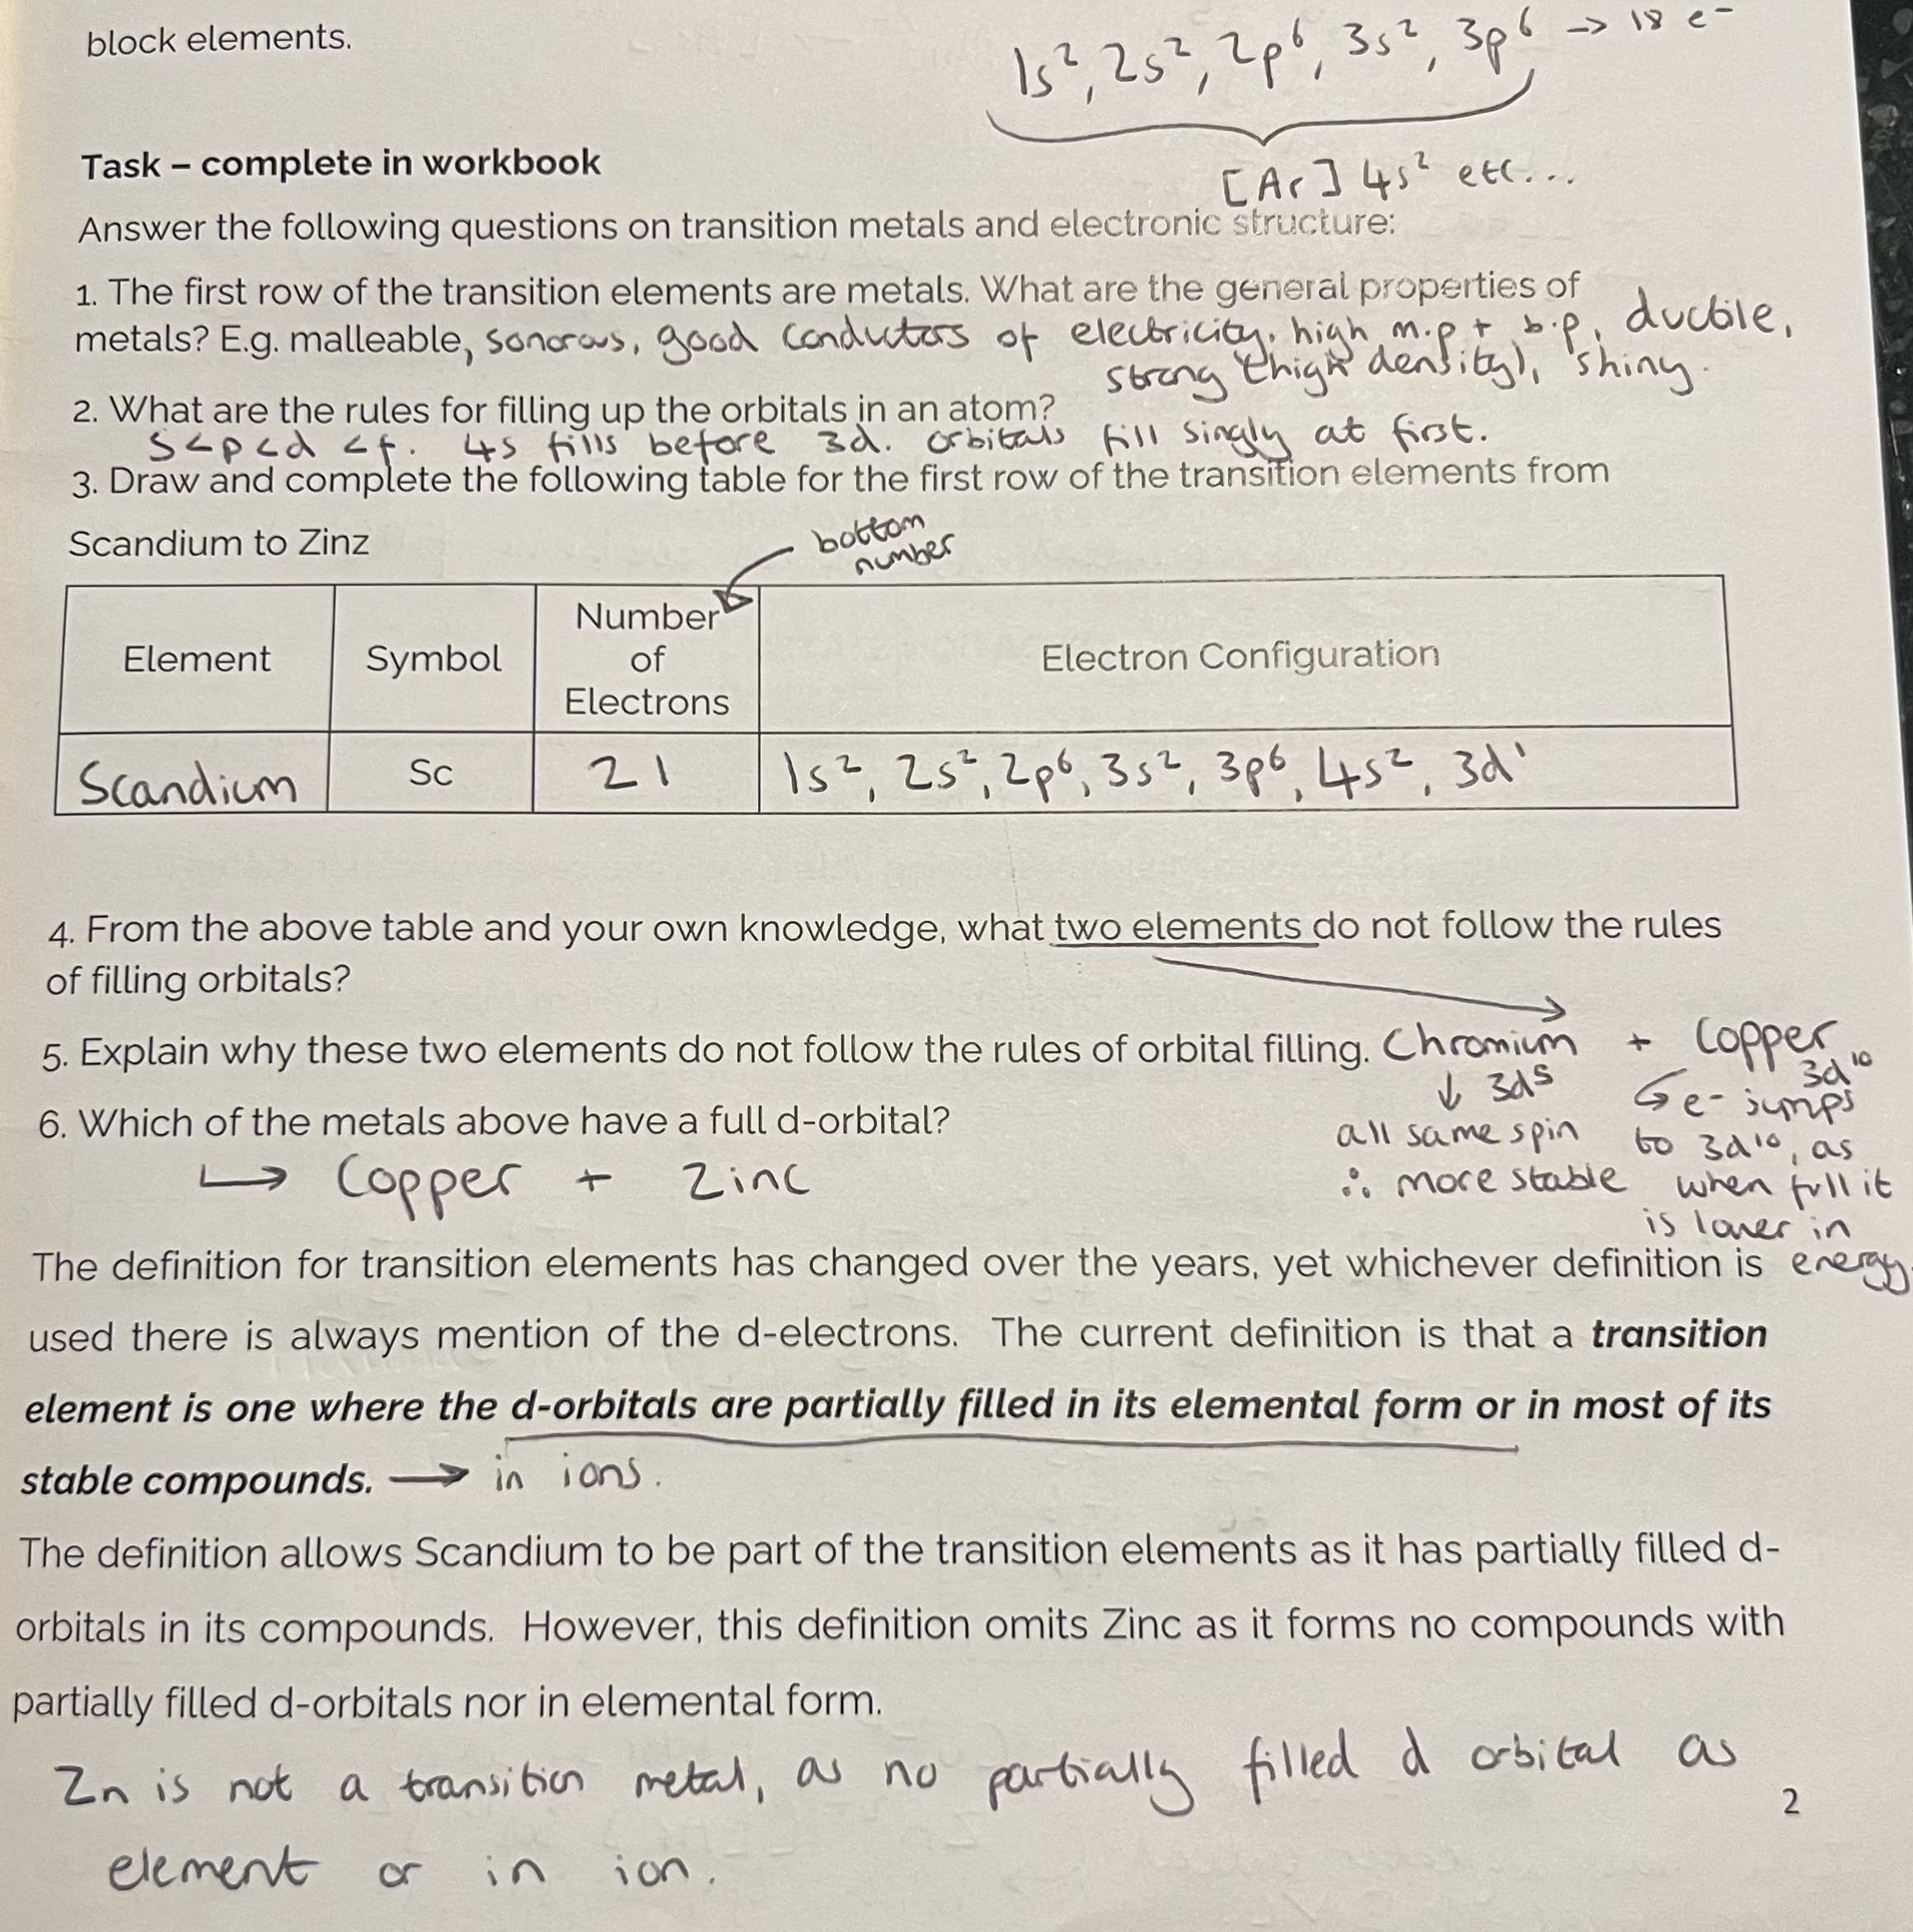 block elements.
1s², 2s², 2p⁶, 3s², 3p⁶ → 18 e⁻
[Ar] 4s² etc...
Task – complete in workbook
Answer the following questions on transition metals and electronic structure:
1. The first row of the transition elements are metals. What are the general properties of
metals? E.g. malleable, sonorous, good conductors of electricity, high m.p + b.p, ductile,
strong (high density), shiny.
2. What are the rules for filling up the orbitals in an atom?
s<p<d <f. 4s fills before 3d. orbitals fill singly at first.
3. Draw and complete the following table for the first row of the transition elements from
Scandium to Zinz
bottom
number
Element Symbol Number of Electrons Electron Configuration
Scandium Sc 21 1s², 2s², 2p⁶, 3s², 3p⁶, 4s², 3d¹
4. From the above table and your own knowledge, what two elements do not follow the rules
of filling orbitals?
5. Explain why these two elements do not follow the rules of orbital filling. Chromium + Copper
↓ 3d⁵
all same spin
∴ more stable
3d¹⁰
e⁻ jumps
to 3d¹⁰, as
when full it
is lower in
energy.
6. Which of the metals above have a full d-orbital?
↳ Copper + Zinc
The definition for transition elements has changed over the years, yet whichever definition is
used there is always mention of the d-electrons. The current definition is that a transition
element is one where the d-orbitals are partially filled in its elemental form or in most of its
stable compounds. → in ions.
The definition allows Scandium to be part of the transition elements as it has partially filled d-
orbitals in its compounds. However, this definition omits Zinc as it forms no compounds with
partially filled d-orbitals nor in elemental form.
Zn is not a transition metal, as no partially filled d orbital as
element or in ion.
2